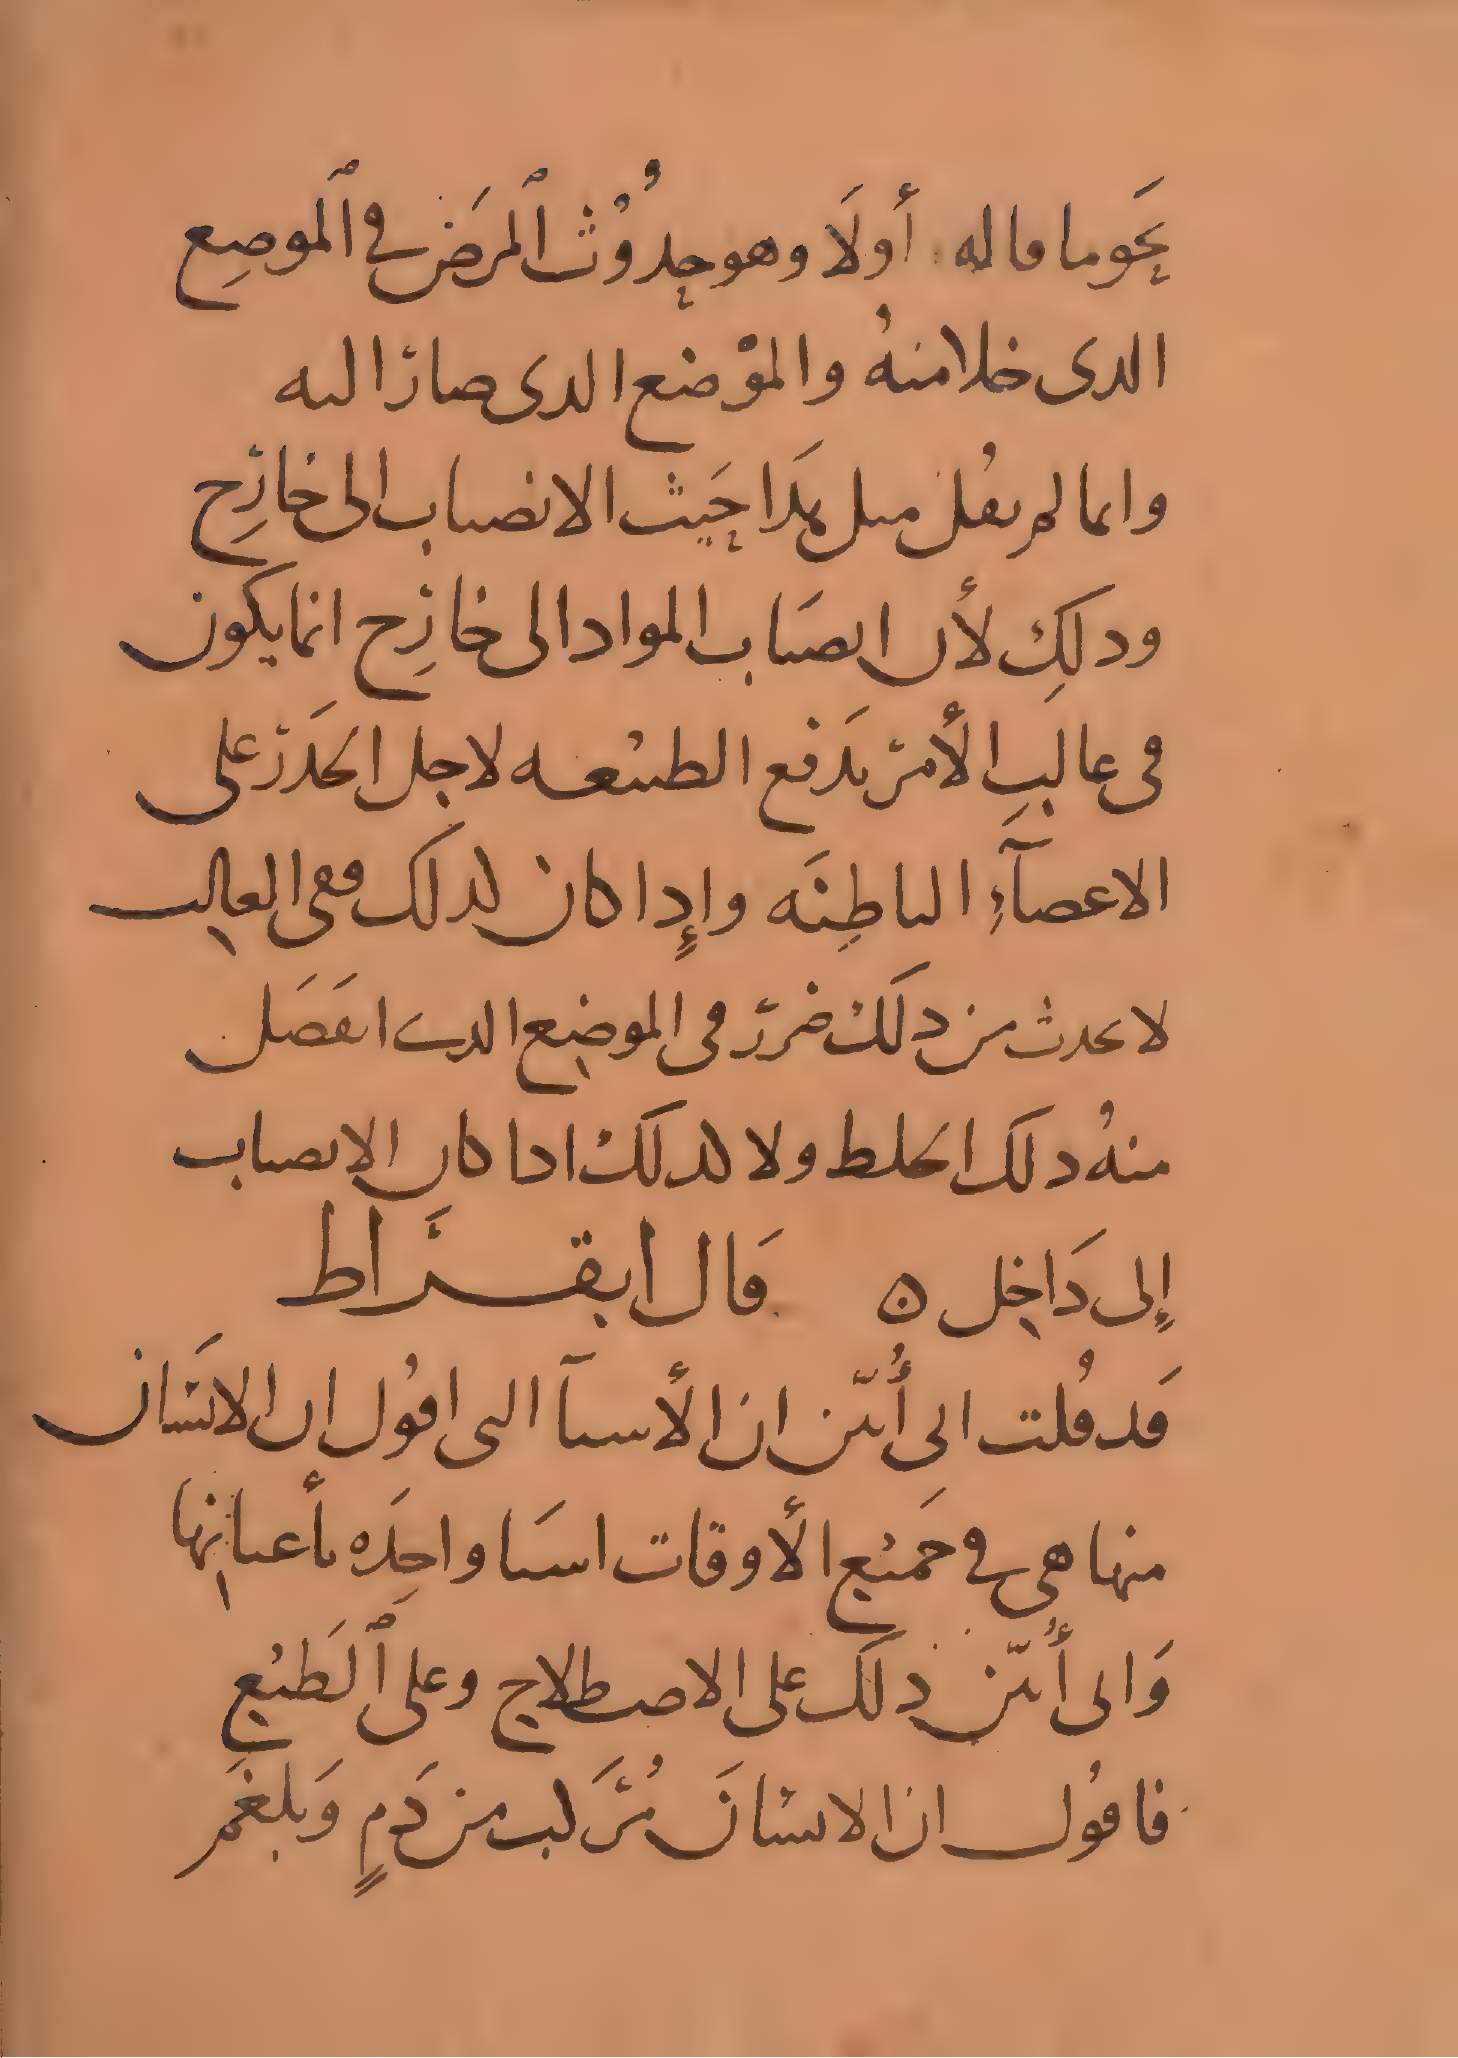 نحَو ما قاله أولَا وهو حدُوُث ٱلمرَض في ٱلموضِع
الدى خلا منهُ والموْضع الدى صار اليه
وانما لم يقُل مثل هدَا حَيث الانصباب الى خارِج
ودلكِ لأن انصبَاب المواد الى خارِج انما يكون
فى غالبِ الأمر بدَفع الطبيعه لاجل الحَدر على
الاعضآءِ الباطِنَه وإِدا كان كدلَك ففى الغالِب
لا يحدث من دلَك ضرر فى الموضِع الدى انفَصَل
منهُ دلَك الخلط ولا كدلَك ادا كان الانصباب
إِلى دَاخِل ه قَال ابقــرَاط
قَد قُلت انى أُبيّن ان الأشيآ التى اقُول ان الانسَان
منها هى في جَميع الأوقات اشيَا واحِدَه بأعيانِها
وَانى أُبيّن دلَك على الاصطلاح وعلى ٱلطَبُع
فاقوُل ان الانسانَ مُرَكب من دَمٍ وَبلغَم